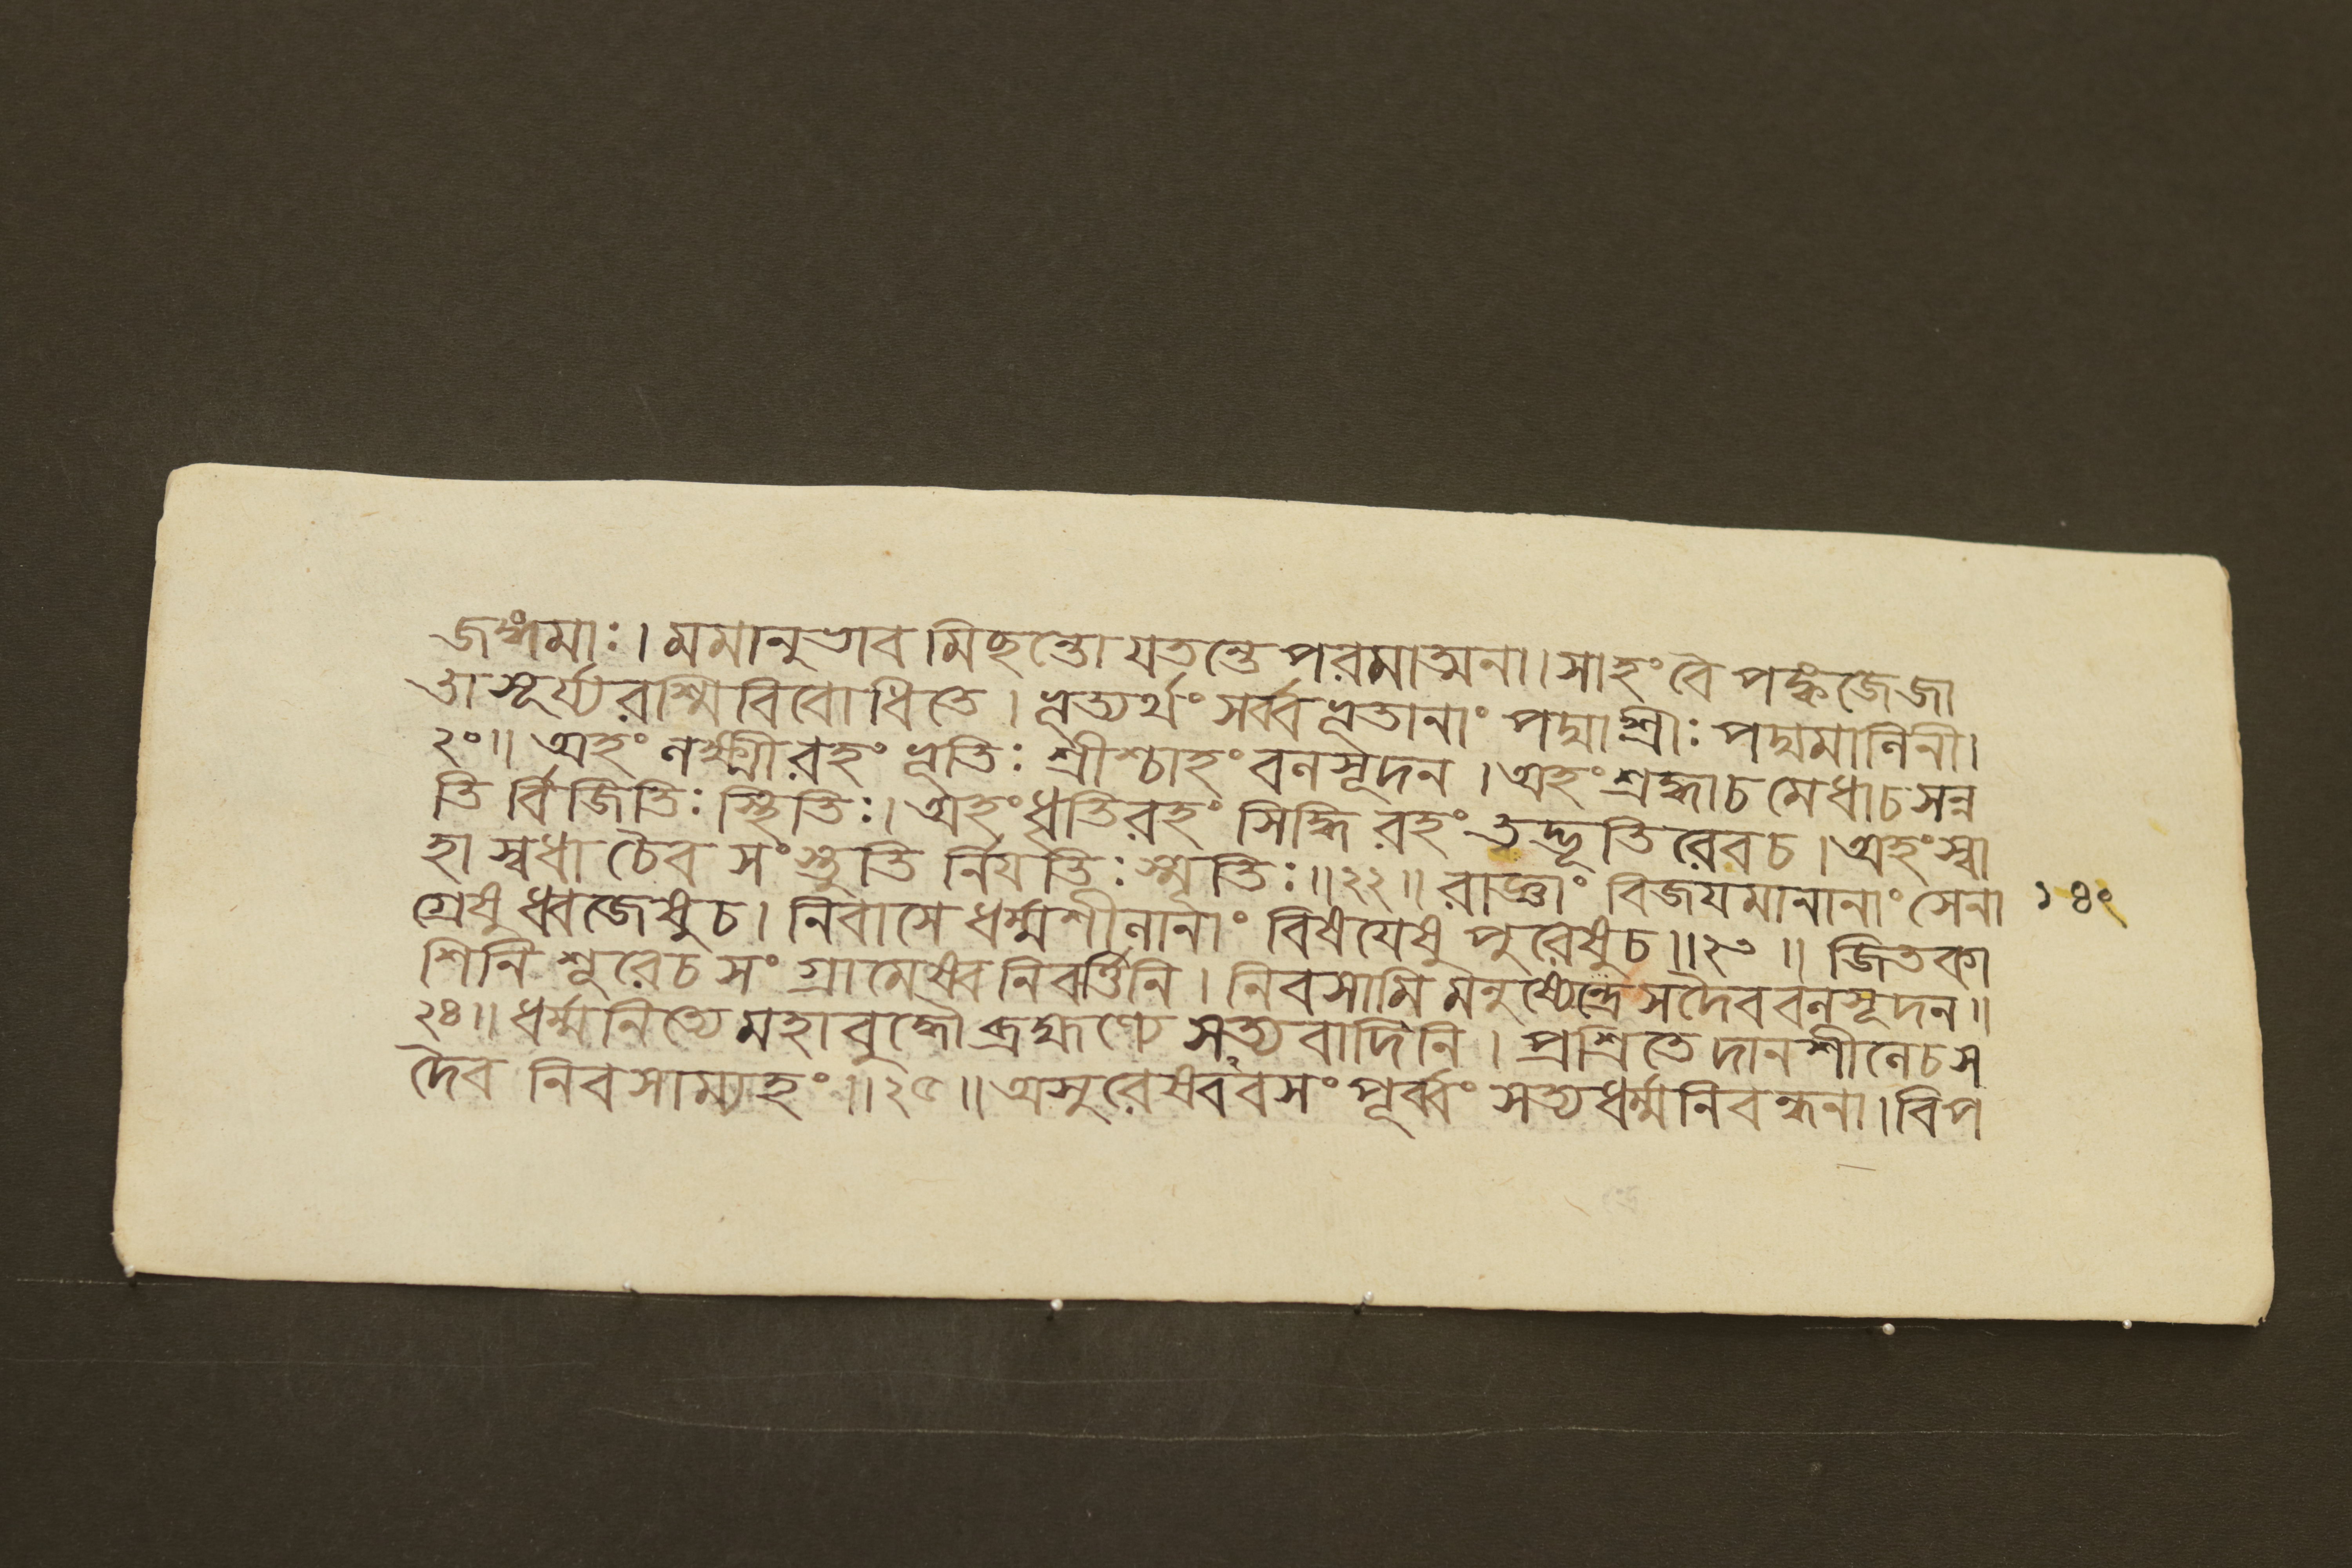 জঙ্গমাঃ। মমানুভাব মিছন্তো যতন্তে পরমাত্মনা। সাহং বৈ পঙ্কজেজা
তা সূর্য্যরশ্মিবিবোধিতে। ভূত্যর্থং সর্ব্বভূতানাং পদ্মাশ্রীঃ পদ্মমালিনী।
২০॥ অহং লক্ষ্মীরহং ভূতিঃ শ্রীশ্চাহং বলসূদন। অহং শ্রদ্ধাচ মেধাচ সন্ন
তি র্বিজিতিঃ স্থিতিঃ। অহং ধৃতিরহং সিদ্ধি রহং ত্বদ্ভূতি রেবচ। অহং স্বা
হা স্বধা চৈব সংস্তুতি র্নিযতিঃ স্মৃতিঃ॥২২॥ রাজ্ঞাং বিজযমানানাং সেনা
গ্রেষু ধ্বজেষুচ। নিবাসে ধর্ম্মশীলানাং বিষযেষু পুরেষুচ॥২৩॥ জিতকা
শিনি শূরেচ সংগ্রামেষ্বনিবর্ত্তিনি। নিবসামি মনুষ্যেন্দ্রে সদৈব বলসূদন॥
২৪॥ ধর্ম্মনিত্যে মহাবুদ্ধৌ ব্রহ্মণ্যে সত্যবাদিনি। প্রশ্রিতে দানশীলেচ স
দৈব নিবসাম্যহং॥২৫॥ অসুরেষ্ববসং পূর্ব্বং সত্যধর্ম্মনিবন্ধনা। বিপ
১৪২